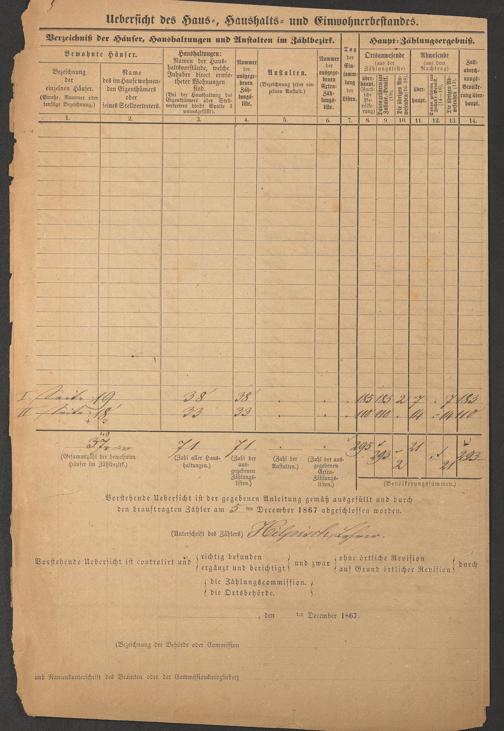 Uebersicht des Haus-, Haushalts- und Einwohnerbestandes.
Verzeichniß der Häuser, Haushaltungen und Anstalten im Zählbezirk.
Haupt-Zählungsergebniß.
Bewohnte Häuser.
Bezeichnung
der
einzelnen Häuser.
(Straße, Nummer oder
sonstige Bezeichnung.)
Name
des im Hause wohnen-
den Eigenthümers
oder
seines Stellvertreters.
Haushaltungen:
Namen der Haus-
haltsvorstände, welche
Inhaber direct ermie-
theter Wohnungen
sind.
(Bei der Haushaltung des
Eigenthümers oder Stell-
vertreters bleibt Spalte 3
unausgefüllt).
Nummer
der
ausgege-
benen
Zäh-
lungs-
liste.
Anstalten.
(Bezeichnung jeder ein-
zelnen Anstalt.)
Nummer
der
ausgege-
benen
Extra-
Zäh-
lungs-
liste.
Tag
der
Ein-
samm-
lung
der
Listen.
Ortsanwesende
(aus der
Zählungsliste)
Abwesende
(aus dem
Nachtrag)
über-
haupt
über-
haupt.
1. 2. 3. 4. 5. 6. 7. 8. 9. 10. 11. 12. 13. 14.
I. Seite 19 38 38 185 183 2 7 - 7 183
II. Seite 18 33 33 110 110 - 14 - 14 110
37 71 71 - - 295 293 2 21 - 21 293
(Gesammtzahl der bewohnten
Häuser im Zählbezirk.)
(Zahl aller Haus-
haltungen.)
(Zahl der
aus-
gegebenen
Zählungs-
listen.)
(Zahl der
Anstalten.)
(Zahl der aus-
gegebenen
Extra-
Zählungs-
listen.)
(Bevölkerungssummen.)
Vorstehende Uebersicht ist der gegebenen Anleitung gemäß ausgefüllt und durch
den beauftragten Zähler am 5 ten December 1867 abgeschlossen worden.
(Unterschrift des Zählers)
Vorstehende Uebersicht ist controlirt und
richtig befunden
ergänzt und berichtigt
und zwar
ohne örtliche Revision
auf Grund örtlicher Revision
durch
die Zählungscommission.
die Ortsbehörde.
, den ten December 1867.
(Bezeichnung der Behörde oder Commission
und Namensunterschrift des Beamten oder der Commissionsmitglieder)